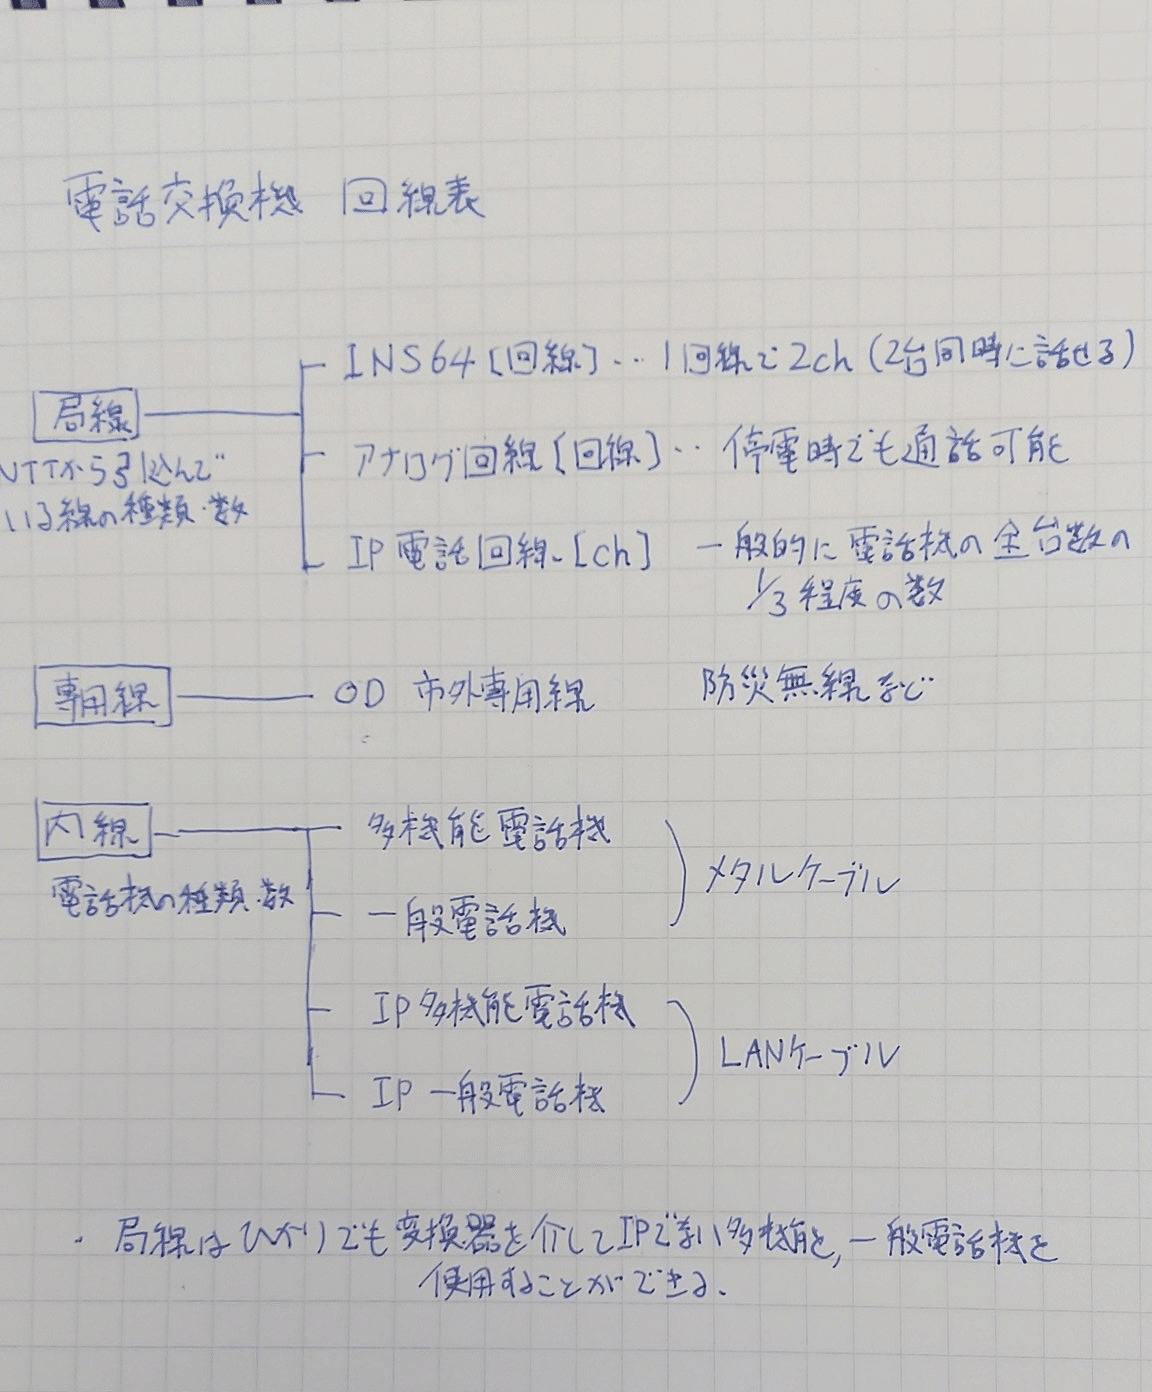 電話交換機 回線表
INS64 [回線] … 1回線で2ch (2台同時に話せる)
局線
アナログ回線 [回線] ‥ 停電時でも通話可能
NTTから引込んで
いる線の種類・数
IP電話回線 [ch] 一般的に電話機の全台数の
1/3程度の数
専用線 OD 市外専用線 防災無線など
内線 多機能電話機
メタルケーブル
電話機の種類・数
一般電話機
IP多機能電話機
LANケーブル
IP 一般電話機
・局線はひかりでも変換器を介してIPでない多機能、一般電話機を
使用することができる。